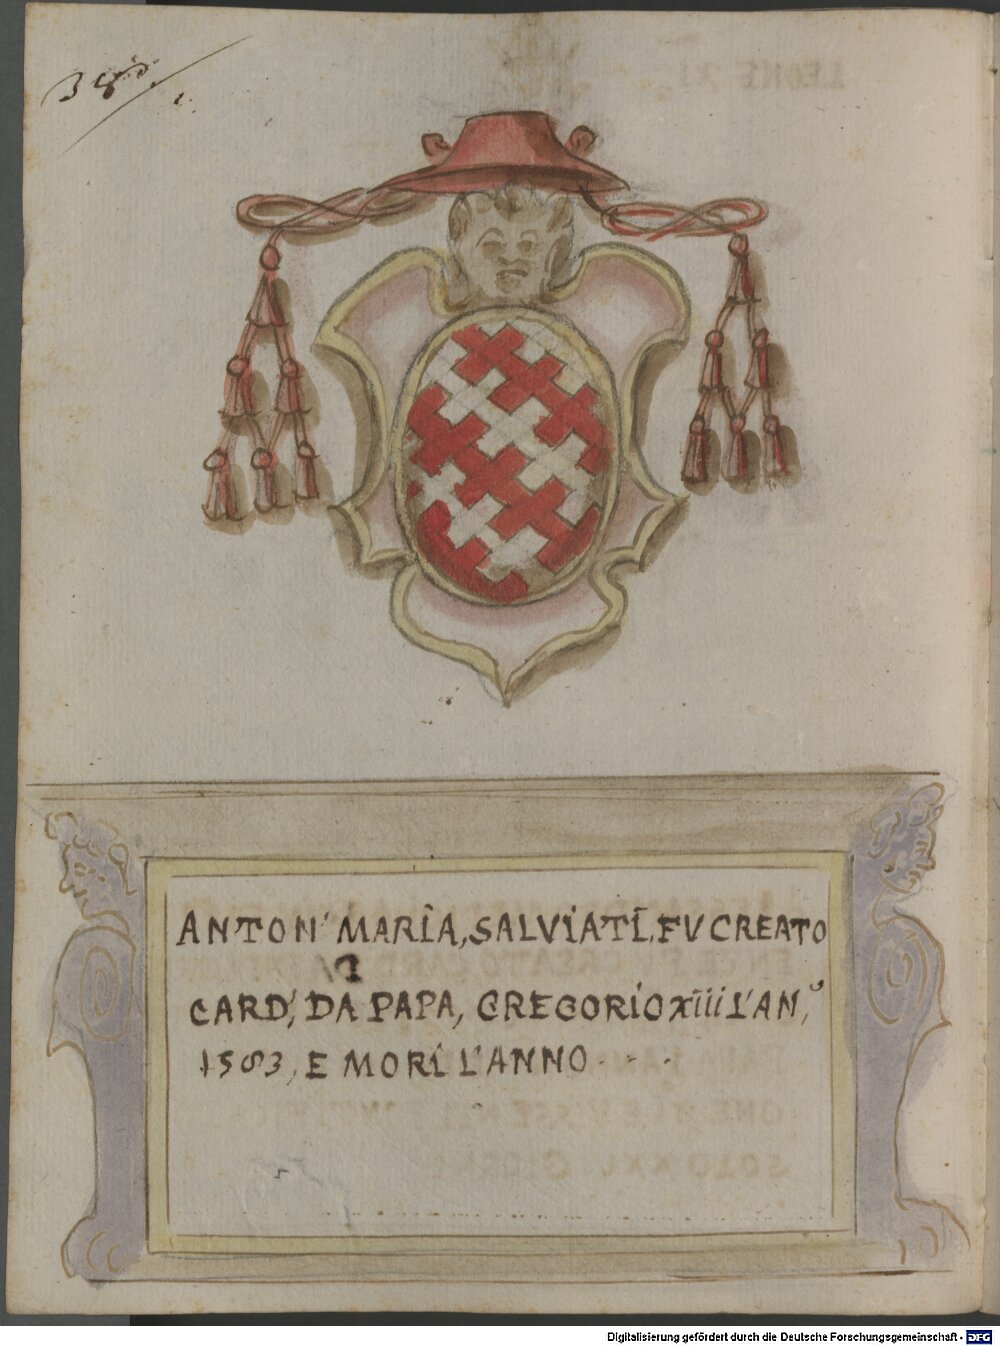 ANTON' MARIA, SALVIATI, FV CREATO
CARD', DA PAPA, GREGORIO XIII L'AN,º
1583, E MORI L'ANNO · - ·
Digitalisierung gefördert durch die Deutsche Forschungsgemeinschaft - DFG